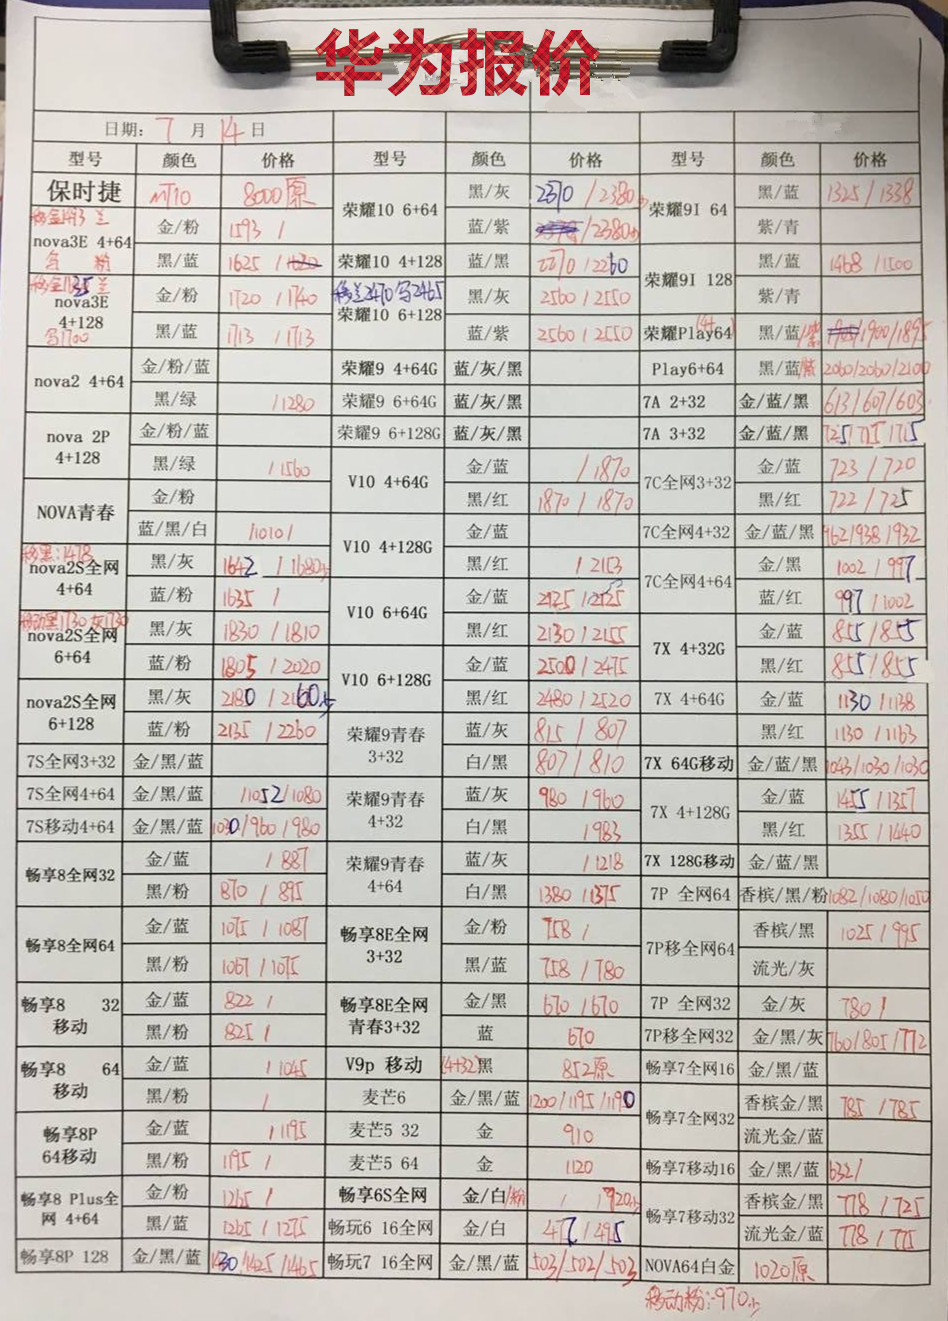 华为报价
日期: 7 月 14 日
型号 颜色 价格 型号 颜色 价格 型号 颜色 价格
保时捷 MT10 8000原 荣耀10 6+64 黑/灰 2370 / 2380 荣耀9I 64 黑/蓝 1325 / 1338
nova3E 4+64 金/粉 1593 / 蓝/紫 /2380 紫/青
黑/蓝 1625 / 荣耀10 4+128 黑/蓝 2270 / 2260 荣耀9I 128 黑/蓝 1468 / 1500
nova3E 4+128 金/粉 1720 / 1740 移兰2470 乌2465 荣耀10 6+128 黑/灰 2560 / 2550 紫/青
乌1700 黑/蓝 1713 / 1713 蓝/紫 2560 / 2550 荣耀Play64 (4+) 黑/蓝/紫 /1900/1895
nova2 4+64 金/粉/蓝 荣耀9 4+64G 蓝/灰/黑 Play6+64 黑/蓝 2060/2060/2100
黑/绿 /1280 荣耀9 6+64G 蓝/灰/黑 7A 2+32 金/蓝/黑 613/607/603
nova 2P 4+128 金/粉/蓝 荣耀9 6+128G 蓝/灰/黑 7A 3+32 金/蓝/黑 725/715/1715
黑/绿 / 1560 V10 4+64G 金/蓝 / 1870 7C全网3+32 金/蓝 723 / 720
NOVA青春 金/粉 黑/红 1870 / 1870 黑/红 722 / 725
蓝/黑/白 /1010/ V10 4+128G 金/蓝 7C全网4+32 金/蓝/黑 962/938/932
移黑:1478 nova2S全网 4+64 黑/灰 1642 / 1680 黑/红 / 2153 7C全网4+64 金/黑 1002 / 997
蓝/粉 1635 / V10 6+64G 金/蓝 2125 /2125 蓝/红 997 / 1002
移动黑1730 灰1730 nova2S全网 6+64 黑/灰 1830 / 1810 黑/红 2130 / 2155 7X 4+32G 金/蓝 855 / 855
蓝/粉 1805 / 2020 V10 6+128G 金/蓝 2500 / 2475 黑/红 855 / 855
nova2S全网 6+128 黑/灰 2180 / 2160 黑/红 2480 / 2520 7X 4+64G 金/蓝 1130 / 1138
蓝/粉 2135 / 2260 荣耀9青春 3+32 蓝/灰 815 / 807 黑/红 1130 / 1163
7S全网3+32 金/黑/蓝 白/黑 807 / 810 7X 64G移动 金/蓝/黑 1043/1030/1030
7S全网4+64 金/黑/蓝 /1052/1080 荣耀9青春 4+32 蓝/灰 980 / 960 7X 4+128G 金/蓝 1455 / 1357
7S移动4+64 金/黑/蓝 1030/960/980 白/黑 / 983 黑/红 1355 / 1440
畅享8全网32 金/蓝 / 887 荣耀9青春 4+64 蓝/灰 / 1218 7X 128G移动 金/蓝/黑
黑/粉 870 / 895 白/黑 1380 / 1375 7P 全网64 香槟/黑/粉 1082/1080/1050
畅享8全网64 金/蓝 1075 / 1087 畅享8E全网 3+32 金/粉 758 / 7P移全网64 香槟/黑 1025 / 995
黑/粉 1067 / 1075 黑/蓝 758 / 780 流光/灰
畅享8 32 移动 金/蓝 822 / 畅享8E全网 青春3+32 金/黑 670 / 670 7P 全网32 金/灰 780 /
黑/粉 825 / 蓝 670 7P移全网32 金/黑/灰 760/805/772
畅享8 64 移动 金/蓝 / 1045 V9p 移动 (4+32)黑 852原 畅享7全网16 金/黑/蓝
黑/粉 / 麦芒6 金/黑/蓝 1200/1195/1190 畅享7全网32 香槟金/黑 785 / 785
畅享8P 64移动 金/蓝 / 1195 麦芒5 32 金 910 流光金/蓝
黑/粉 1195 / 麦芒5 64 金 1120 畅享7移动16 金/黑/蓝 632/
畅享8 Plus全网 4+64 金/粉 1265 / 畅享6S全网 金/白/粉 / /920 畅享7移动32 香槟金/黑 778 / 725
黑/蓝 1265 / 1275 畅玩6 16全网 金/白 477 / 495 流光金/蓝 778 / 775
畅享8P 128 金/黑/蓝 1430/1425/1465 畅玩7 16全网 金/黑/蓝 503/502/503 NOVA64白金 1020原
移动粉:-970